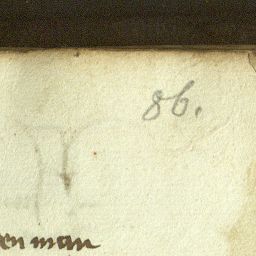 86.
en man